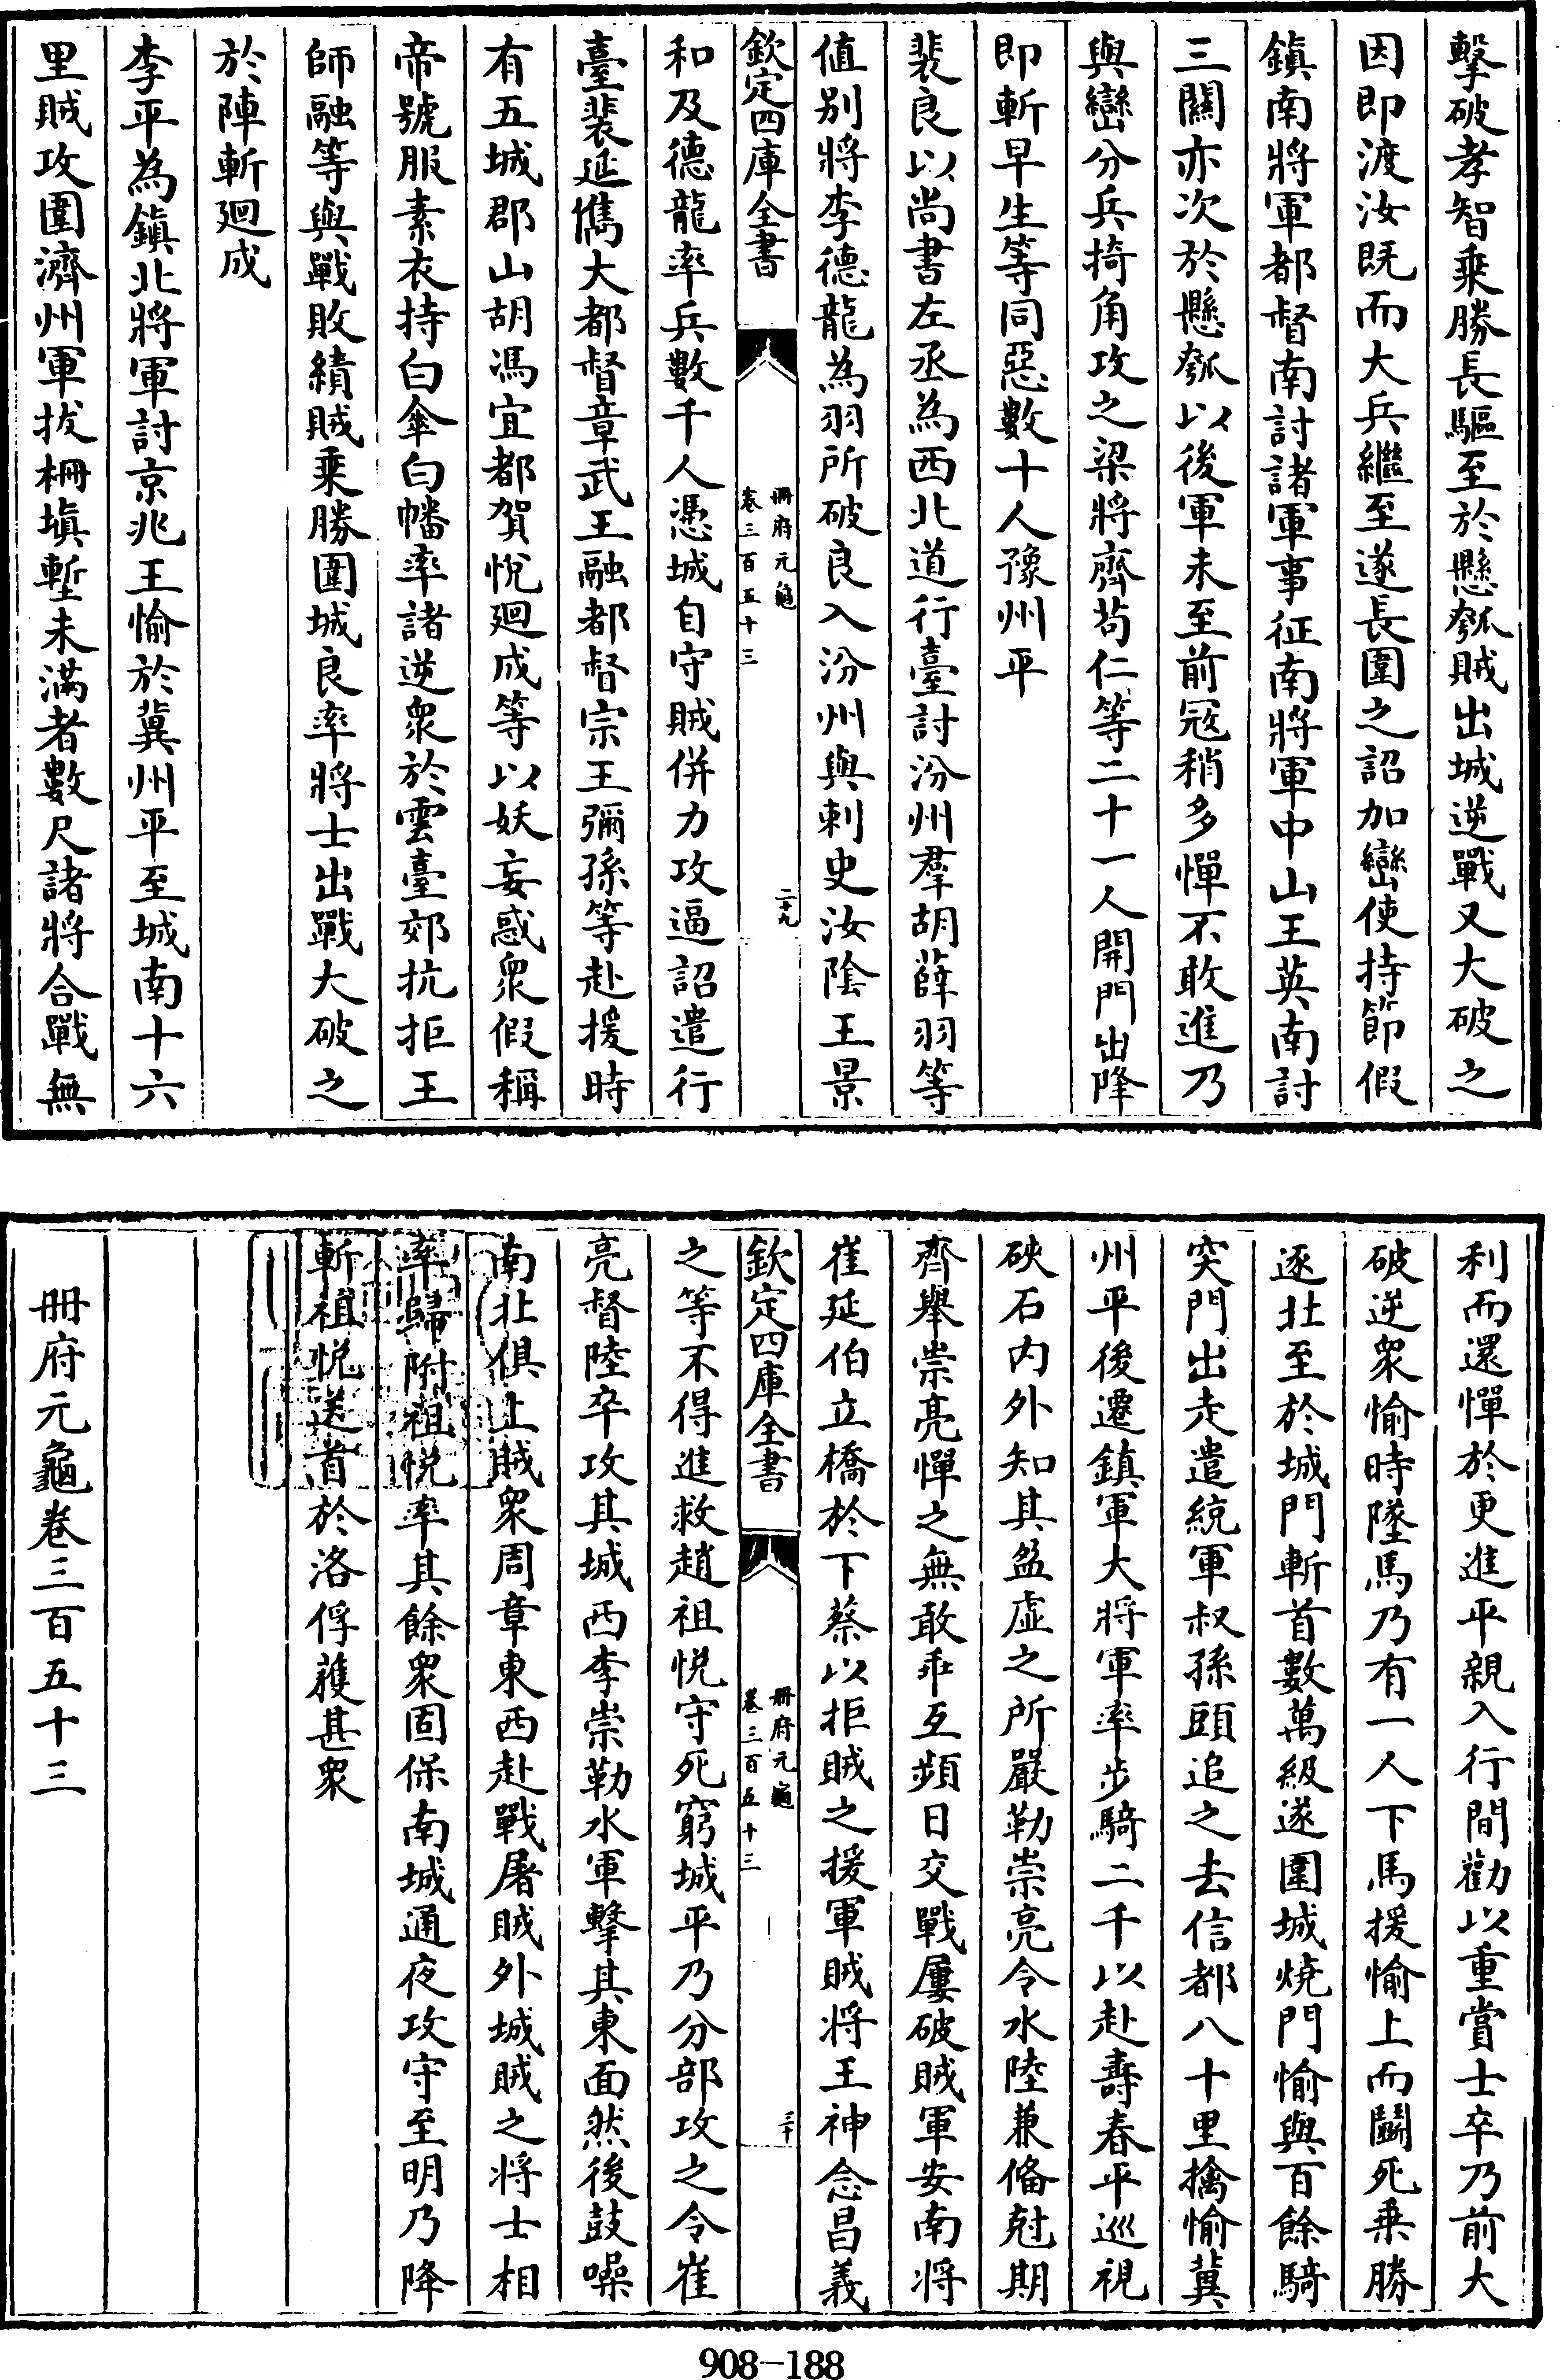 擊破孝智乘勝長驅至於懸瓠賊出城逆戰又大破之
因即渡汝既而大兵繼至遂長圍之詔加巒使持節假
鎮南將軍都督南討諸軍事征南將軍中山王英南討
三關亦次於懸瓠以後軍未至前冦稍多憚不敢進乃
與巒分兵掎角攻之梁將齊苟仁等二十一人開門出降
即斬早生等同惡數十人豫州平
裴良以尚書左丞為西北道行臺討汾州羣胡薛羽等
值别將李德龍為羽所破良入汾州與刺史汝陰王景
欽定四庫全書
冊府元龜
卷三百五十三
二十九
和及德龍率兵數千人憑城自守賊併力攻逼詔遣行
臺裴延儁大都督章武王融都督宗王彌孫等赴援時
有五城郡山胡馮宜都賀悅廻成等以妖妄惑衆假稱
帝號服素衣持白傘白幡率諸逆衆於雲臺郊抗拒王
師融等與戰敗績賊乘勝圍城良率將士出戰大破之
於陣斬廻成
李平為鎮北將軍討京兆王愉於冀州平至城南十六
里賊攻圍濟州軍拔柵塡塹未滿者數尺諸將合戰無
利而還憚於更進平親入行間勸以重賞士卒乃前大
破逆衆愉時墜馬乃有一人下馬援愉上而鬭死乘勝
逐北至於城門斬首數萬級遂圍城燒門愉與百餘騎
突門出走遣統軍叔孫頭追之去信都八十里擒愉冀
州平後遷鎮軍大將軍率步騎二千以赴壽春平巡視
硤石内外知其盈虛之所嚴勒崇亮令水陸兼備尅期
齊舉崇亮憚之無敢乖互頻日交戰屢破賊軍安南將
崔延伯立橋於下蔡以拒賊之援軍賊將王神念昌義
欽定四庫全書
冊府元龜
卷三百五十三
三十
之等不得進救趙祖悅守死窮城平乃分部攻之令崔
亮督陸卒攻其城西李崇勒水軍擊其東面然後鼓噪
南北俱上賊衆周章東西赴戰屠賊外城賊之將士相
率歸附祖悅率其餘衆固保南城通夜攻守至明乃降
斬祖悅送首於洛俘蕕甚衆
冊府元龜卷三百五十三
908-188